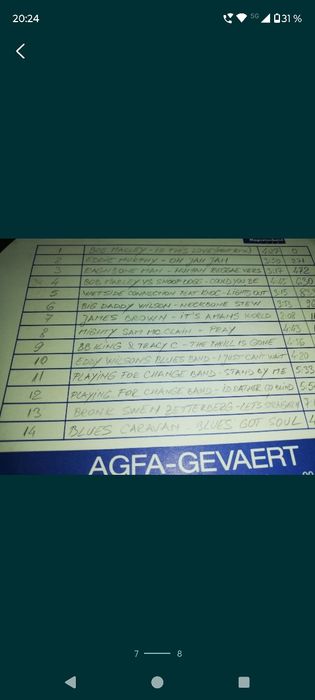 20:24
5G
31 %
1 BOB MARLEY - IS THIS LOVE 4:27 0
2 EDDIE MURPHY - OH JAH JAH 3:50 271
3 MAN - HUMAN VERS 3:17 472
4 BOB MARLEY VS SNOOP DOGG - COULD YOU BE 4:13 630
5 WESTSIDE CONNECTION FEAT KNOC - LIGHTS OUT 3:13
6 BIG DADDY WILSON - NECKBONE STEW 3:53
7 JAMES BROWN - IT'S A MANS WORLD 2:08
8 MIGHTY SAM MC CLAIN - PRAY 4:43
9 BB KING & TRACY C - THE THRILL IS GONE 4:36
10 EDDY WILSONS BLUES BAND - I JUST CANT WAIT 4:20
11 PLAYING FOR CHANGE BAND - STAND BY ME 5:33
12 PLAYING FOR CHANGE BAND - I'D RATHER GO BLIND
13
14 BLUES CARAVAN BLUES GOT SOUL
AGFA-GEVAERT
7 8